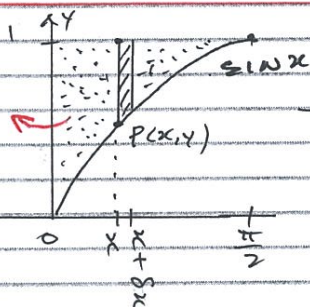 Y
1
SIN x
P(x,y)
0
x
x + δx
π/2